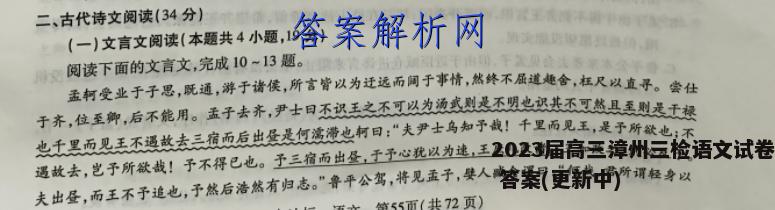 二、古代诗文阅读(34分)
(一)文言文阅读(本题共4小题,19分)
答案解析网
阅读下面的文言文,完成10~13题。
孟轲受业于子思,既通,游于诸侯,所言皆以为迂远而阔于事情,然终不屈道趣舍,枉尺以直寻。尝仕
于齐,位至卿,后不能用。孟子去齐,尹士曰不识王之不可以为汤武则是不明也识其不可然且至则是干禄
也千里而见王不遇故去三宿而后出昼是何濡滞也轲曰:“夫尹士乌知予哉!千里而见王,是予所欲也;不
遇故去,岂予所欲哉!予不得已也。予三宿而出昼,于予心犹以为速,王
2023届高三漳州三检语文试卷
答案(更新中)
夫出昼,而王不予追也,予然后浩然有归志。”鲁平公驾,将见孟子,嬖人 所谓轻身以
第55页(共72页)